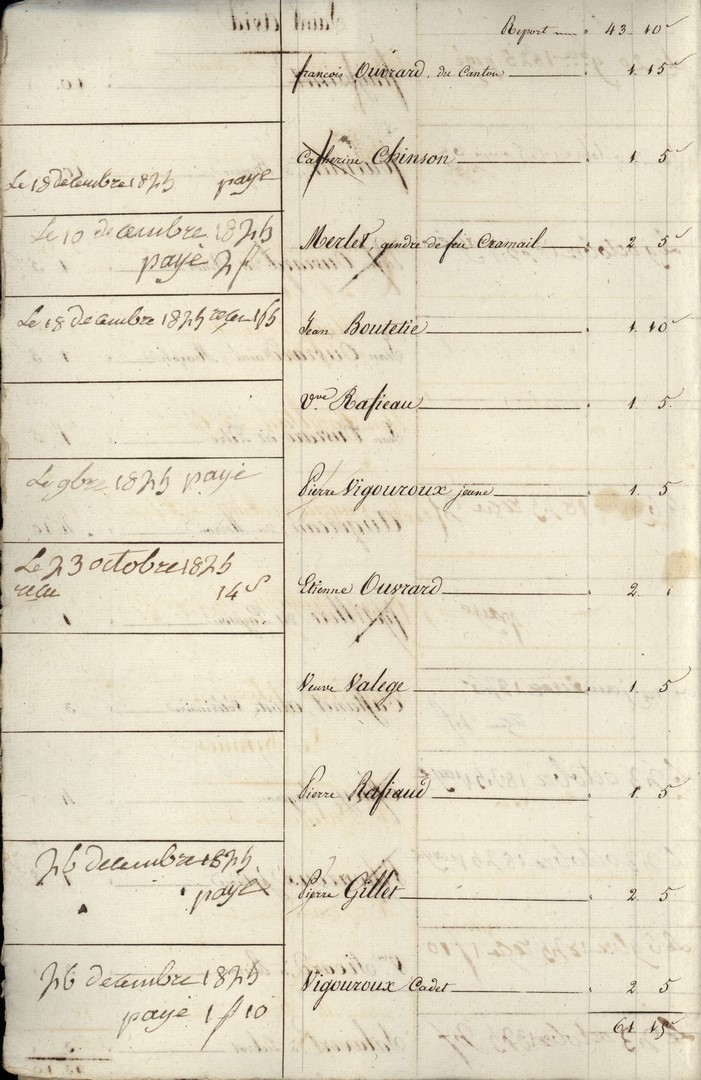 Report 43 10
françois Ouvrard, du Canton 1. 15
Catherine Chinson 1. 5
Le 18 décembre 1825 payé
Merlet, gendre de feu Cramail 2 5
Le 10 decembre 1825
payé 2f
Jean Boutetie 1. 10
Le 18 decembre 1825 recu
Vve Rafieau 1. 5
Pierre Vigouroux jeune 1. 5
Le 9bre 1825 payé
Etienne Ouvrard 2.
Le 23 octobre 1825
recu 14 s
Veuve Valege 1. 5
Pierre Rafiaud 1. 5
Pierre Gillet 2 5
26 decembre 1825
payé
Vigouroux Cadet 2 5
26 decembre 1825
payé 1 f 10
61 15